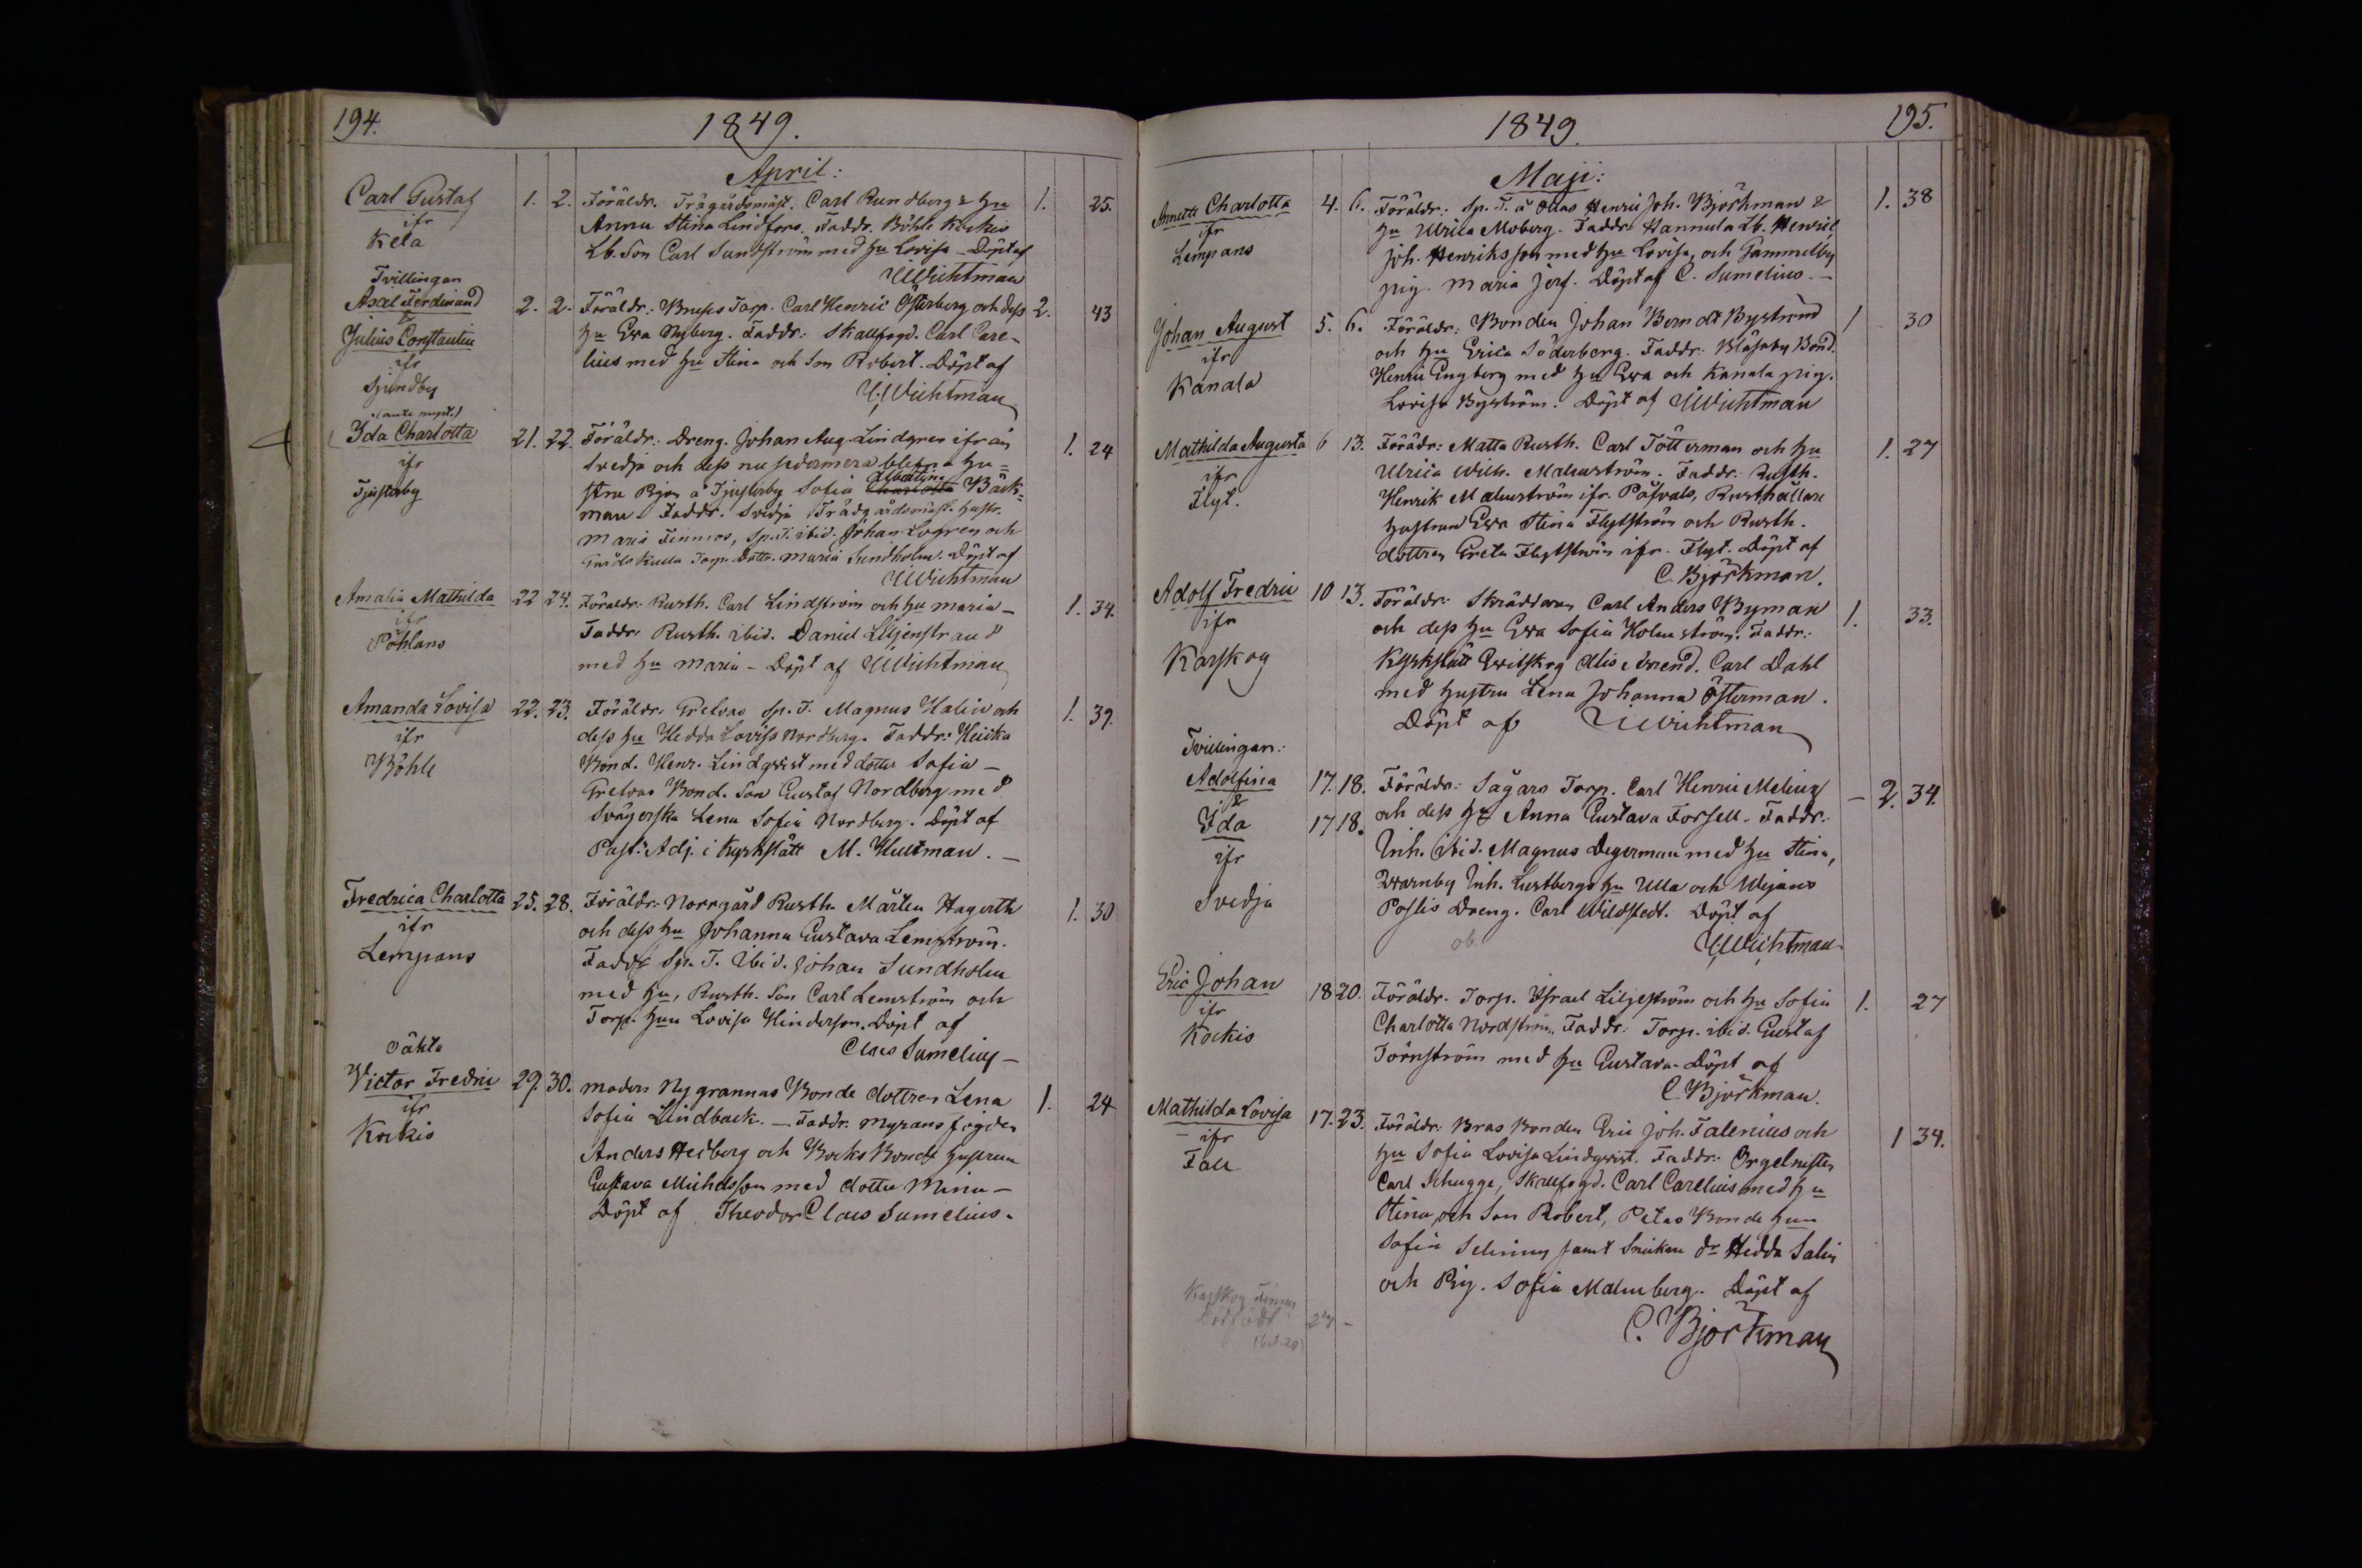 194.
1849.
April:
Carl Gustaf 1. 2. Föräldr. Trägårdsmäst. Carl Rundberg & hu 1. 25.
ifr Anna Stina Lindfors. Faddr. Böhle Kockis
Kela Lb. Son Carl Sundström med hu Lovisa – Döpt af
Wichtman
Tvillingar
Axel Ferdinand 2. 2. Föräldr: Bruses Torp. Carl Henric Österberg och dess 2. 43
& hu Eva Nyberg. Faddr: Skallfogd. Carl Care-
Julius Constantin lius med hu Stina och Son Robert. Döpt af
ifr Wichtman
Sjundby
(ante nupt.)
Ida Charlotta 21. 22. Föräldr: Dreng. Johan Aug. Lindgren ifrån 1. 24
ifr Svedja och dess nu sedermera blefna hu=
Tjusterby stru Pigan å Tjusterby Sofia Charlotta Bäck=
man. Faddr. Svedja Trädgårdsmäst. hustr.
Maria Finnros, Sp. T. ibid. Johan Logren och
Gårdskulla Torp. Dottr. Maria Sundholm. Döpt af
Wichtman
Amalia Mathilda 22 24. Föräldr: Rusth. Carl Lindström och hu Maria – 1. 34.
ifr Faddr. Rusth. ibid. Daniel Liljenstrand
Påhlans med hu Maria – Döpt af Wichtman
Amanda Lovisa 22. 23. Föräldr. Gretvas Sp. T. Magnus Halin och 1. 39.
ifr dess hu Hedda Lovisa Nordberg. Faddr: Heicka
Böhle Bond. Henr. Lindqvist med dotter Sofia –
Gretvas Bond. Son Gustaf Nordberg med
Svägerska Lena Sofia Nordberg. Döpt af
Past: Adj. i Kyrkslätt M. Hultman. –
Fredrica Charlotta 25. 28. Föräldr: Norrgård Rusth. Mårten Hagerth 1. 30
ifr och dess hu Johanna Gustava Lemström.
Lempans Faddr Sp. T. Ibid. Johan Sundholm
med hu, Rusth. Son Carl Lemström och
Torp. hun Lovisa Hinderson. Döpt af
Claes Sumelius –
Oäkta
Victor Fredric 29. 30. Modern Nygrannas Bonde dottren Lena 1. 24
ifr Sofia Lindbäck. – Faddr. Myrans fogden
Kockis Anders Hedberg och Bocks Bonde hustrun
Gustava Michelsson med dotter Mina –
Döpt af Theodor Claes Sumelius.
1849.
195.
Maji:
Annette Charlotta 4. 6. Föräldr: Sp. T. å Ollas Henric Joh. Björkman & 1. 38
ifr hu Ulrica Moberg. Faddr: Hannula Lb. Henric
Lempans Joh. Henriksson med hu Lovisa, och Gammelby
pig. Maria Jerf. Döpt af C. Sumelius. –
Johan August 5. 6. Föräldr: Bonden Johan Berndt Byström 1 30
ifr och hu Erica Söderberg. Faddr: Blåsaby Bond.
Kanala Henric Engberg med hu Eva och Kanala pig.
Lovisa Byström. Döpt af Wichtman
Mathilda Augusta 6 13. Förädr: Matta Rusth. Carl Tötterman och hu 1. 27
ifr Ulrica Wilh. Malmström. Faddr: Rusth.
Flyt. Henrik Malmström ifr. Påfvals, Rusthållare
hustrun Eva Stina Flytström och Rusth.
dottren Greta Flytström ifr. Flyt. Döpt af
C. Björkman.
Adolf Fredric 10 13. Föräldr: Skräddaren Carl Anders Byman 1. 33.
ifr och dess hu Eva Sofia Holmström. Faddr:
Karskog Kyrkslätt Evitskog Arend. Carl Dahl
med hustru Lena Johanna Österman.
Döpt af Wichtman
Tvillingar:
Adolfina 17. 18. Föräldr: Sågars Torp. Carl Henric Melius – 2. 34.
&
Ida 17 18. och dess hu Anna Gustava Forsell. Faddr:
ifr Inh. ibid. Magnus Degerman med hu Stina,
Svedja Qvarnby Inh. Lustbergs hu Ulla och
Dreng. Carl Wildstedt. Döpt af
ob.
Wichtman
Eric Johan 18 20. Föräldr. Torp. Israel Liljeström och hu Sofia 1. 27
ifr Charlotta Nordström. Faddr: Torp. ibid. Gustaf
Kockis Törnström med hu Gustava. Döpt af
C. Björkman.
Mathilda Lovisa 17. 23. Föräldr: Bras Bonden Eric Joh. Falenius och 1 34.
– ifr hu Sofia Lovisa Lindqvist. Faddr: Orgelnisten
Fall Carl Schugge, Skallfogd. Carl Carelius med hu
Stina, och Son Robert, Petas Bonde hun
Sofia Selining samt Snickare dr Hedda Salin
och Pig. Sofia Malmberg. Döpt af
C. Björkman
Karskog
Dödfödt 27 –